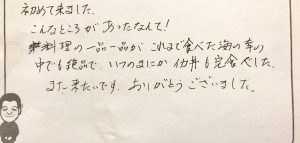 初めて来ました。
こんなところがあったなんて!
料理の一品一品が これまで食べた海の幸の
中でも絶品で、いつのまにか イカ丼も完食でした。
また来たいです。ありがとうございました。